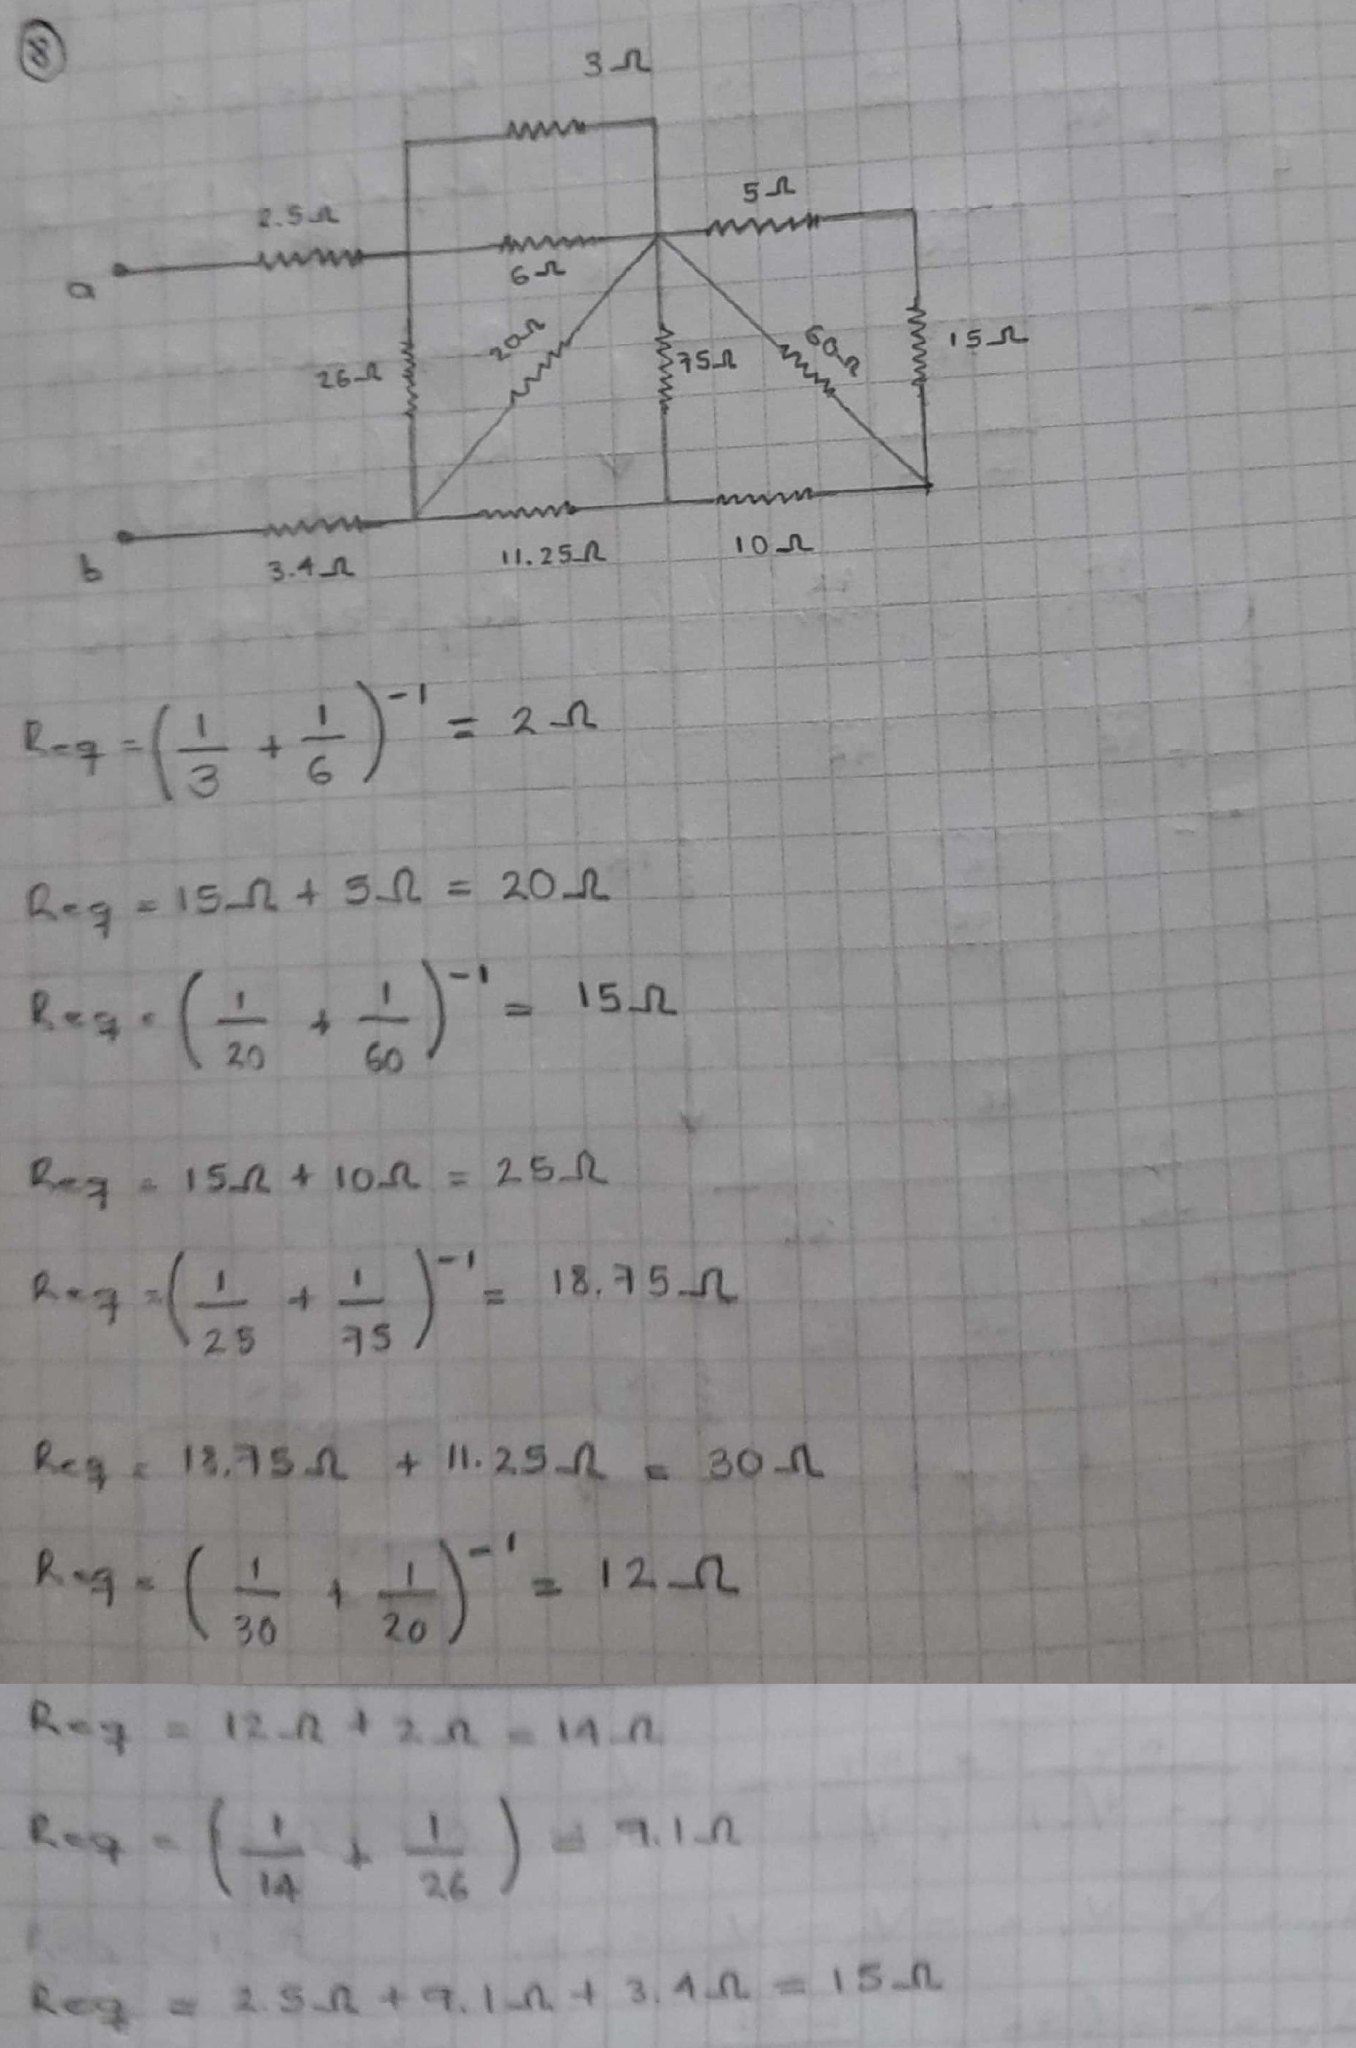 8
3Ω
5Ω
2.5Ω
a
6Ω
20Ω
26Ω
75Ω
60Ω
15Ω
b
3.4Ω
11.25Ω
10Ω
Req = (1/3 + 1/6)^-1 = 2Ω
Req = 15Ω + 5Ω = 20Ω
Req = (1/20 + 1/60)^-1 = 15Ω
Req = 15Ω + 10Ω = 25Ω
Req = (1/25 + 1/75)^-1 = 18.75Ω
Req = 18.75Ω + 11.25Ω = 30Ω
Req = (1/30 + 1/20)^-1 = 12Ω
Req = 12Ω + 2Ω = 14Ω
Req = (1/14 + 1/26) = 9.1Ω
Req = 2.5Ω + 9.1Ω + 3.4Ω = 15Ω